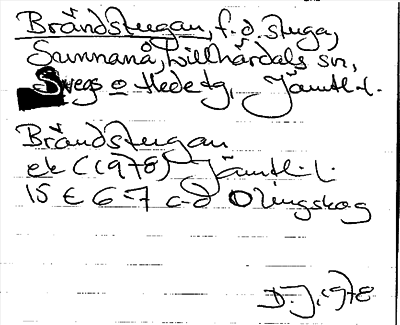 Brändstugan, f.d. stuga,
Sunnanå, Lillhärdals sn,
Svegs o Hede tg, Jämtl. l.
Brändstugan
ek (1978) Jämtl. l.
15 E 6-7 c-d Olingskog
D.J. 1978